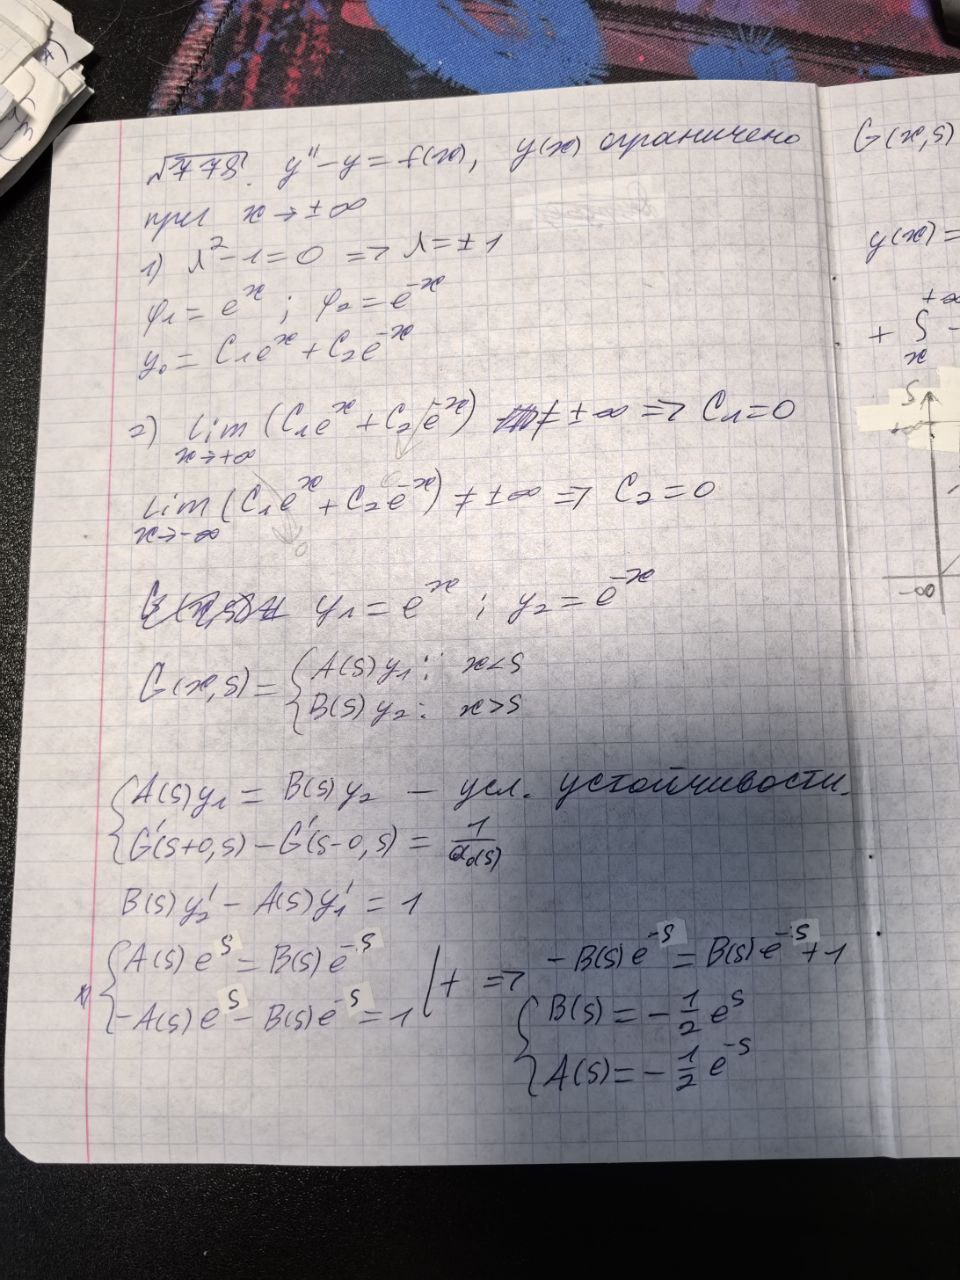 √778. y'' - y = f(x), y(x) ограничено
при x → ±∞
1) λ² - 1 = 0 => λ = ±1
φ₁ = eˣ ; φ₂ = e⁻ˣ
y₀ = C₁eˣ + C₂e⁻ˣ
2) Lim (C₁eˣ + C₂e⁻ˣ) ≠ ±∞ => C₁ = 0
x→+∞
Lim (C₁eˣ + C₂e⁻ˣ) ≠ ±∞ => C₂ = 0
x→-∞
y₁ = eˣ ; y₂ = e⁻ˣ
G(x,s) = { A(s)y₁ : x<s
B(s)y₂ : x>s
{ A(s)y₁ = B(s)y₂ — усл. устойчивости.
G'(s+0,s) - G'(s-0,s) = 1/a₀(s)
B(s)y₂' - A(s)y₁' = 1
{ A(s)eˢ = B(s)e⁻ˢ
-A(s)eˢ - B(s)e⁻ˢ = 1 | + =>
-B(s)e⁻ˢ = B(s)e⁻ˢ + 1
{ B(s) = -1/2 eˢ
A(s) = -1/2 e⁻ˢ
G(x,s)
y(x) =
+∞
+ ∫ -
x
s
+∞
-∞